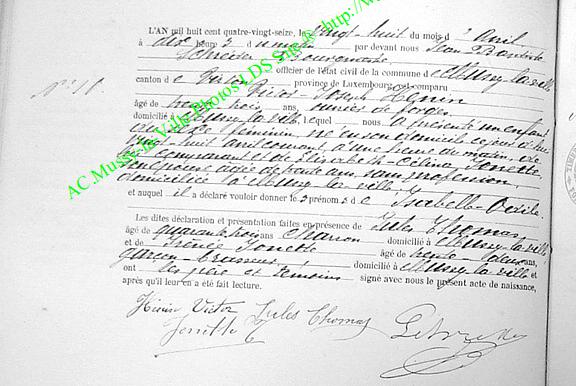 L'AN mil huit cent quatre-vingt-seize, le vingt-huit du mois d'avril
à dix heures du matin par devant nous Jean Baptiste
Bourgmestre
officier de l'état civil de la commune de Mussy-la-ville
canton de Virton province de Luxembourg, est comparu
Victor Joseph Henin
âgé de trente trois ans, ouvrier de forges
domicilié à Mussy-la-ville, lequel nous a présenté un enfant
du sexe féminin, né en son domicile ce jour d'hui
vingt-huit avril courant, à une heure du matin, de
lui comparant et de Elisabeth Célina
son épouse âgée de trente ans, sans profession,
domiciliée à Mussy la ville
et auquel il a déclaré vouloir donner les prénoms de Isabelle
Les dites déclaration et présentation faites en présence de Jules Thomas
âgé de quarante trois ans Charron domicilié à Mussy-la-ville
et de âgé de trente deux ans,
garçon brasseur, domicilié à Mussy-la-ville et
ont les père et témoins signé avec nous le présent acte de naissance,
après qu'il leur en a été fait lecture.
Henin Victor Jules Thomas
AC.Mussy-la Ville-Photos LDS Site de